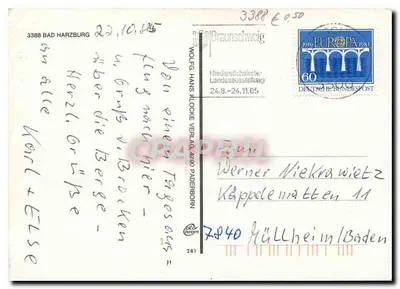 3388 BAD HARZBURG
3388 € 0,50
22.10.85
Von einem Tagesaus=
flug nach hier –
u. Gruß v. Brocken
über die Berge –
Herzl. Grüße
an alle Karl + Else
WOLFG. HANS KLOCKE VERLAG, 4790 PADERBORN
781
Braunschweig
Niedersächsische
Landesausstellung
24.8.-24.11.85
EUROPA
1959 1984
60
DEUTSCHE BUNDESPOST
Werner Niekrawietz
Käppelematten 11
7840 Müllheim/Baden